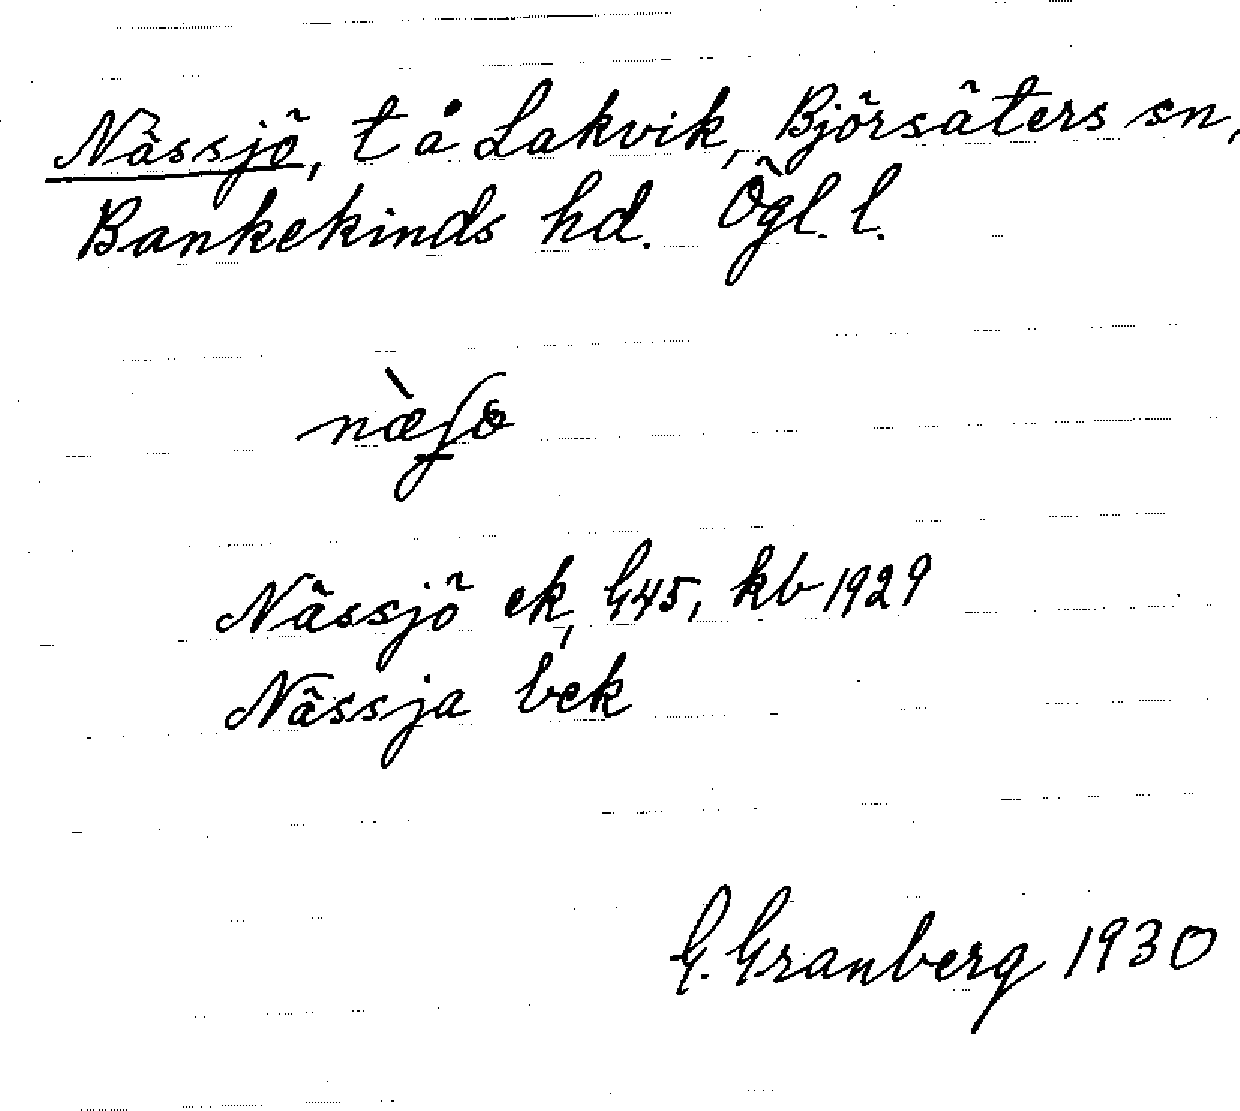 Nässjö, t å Lakvik, Björsäters sn,
Bankekinds hd. Ögl. l.
Nässjö ek, G45, kb 1929
Nässja bek
G. Granberg 1930